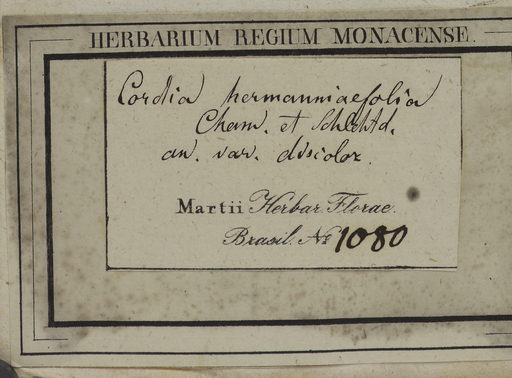 HERBARIUM REGIUM MONACENSE.
Cordia hermanniaefolia
Cham. et Schlchtd.
an. var. discolor.
Martii Herbar. Florae.
Brasil. No 1080